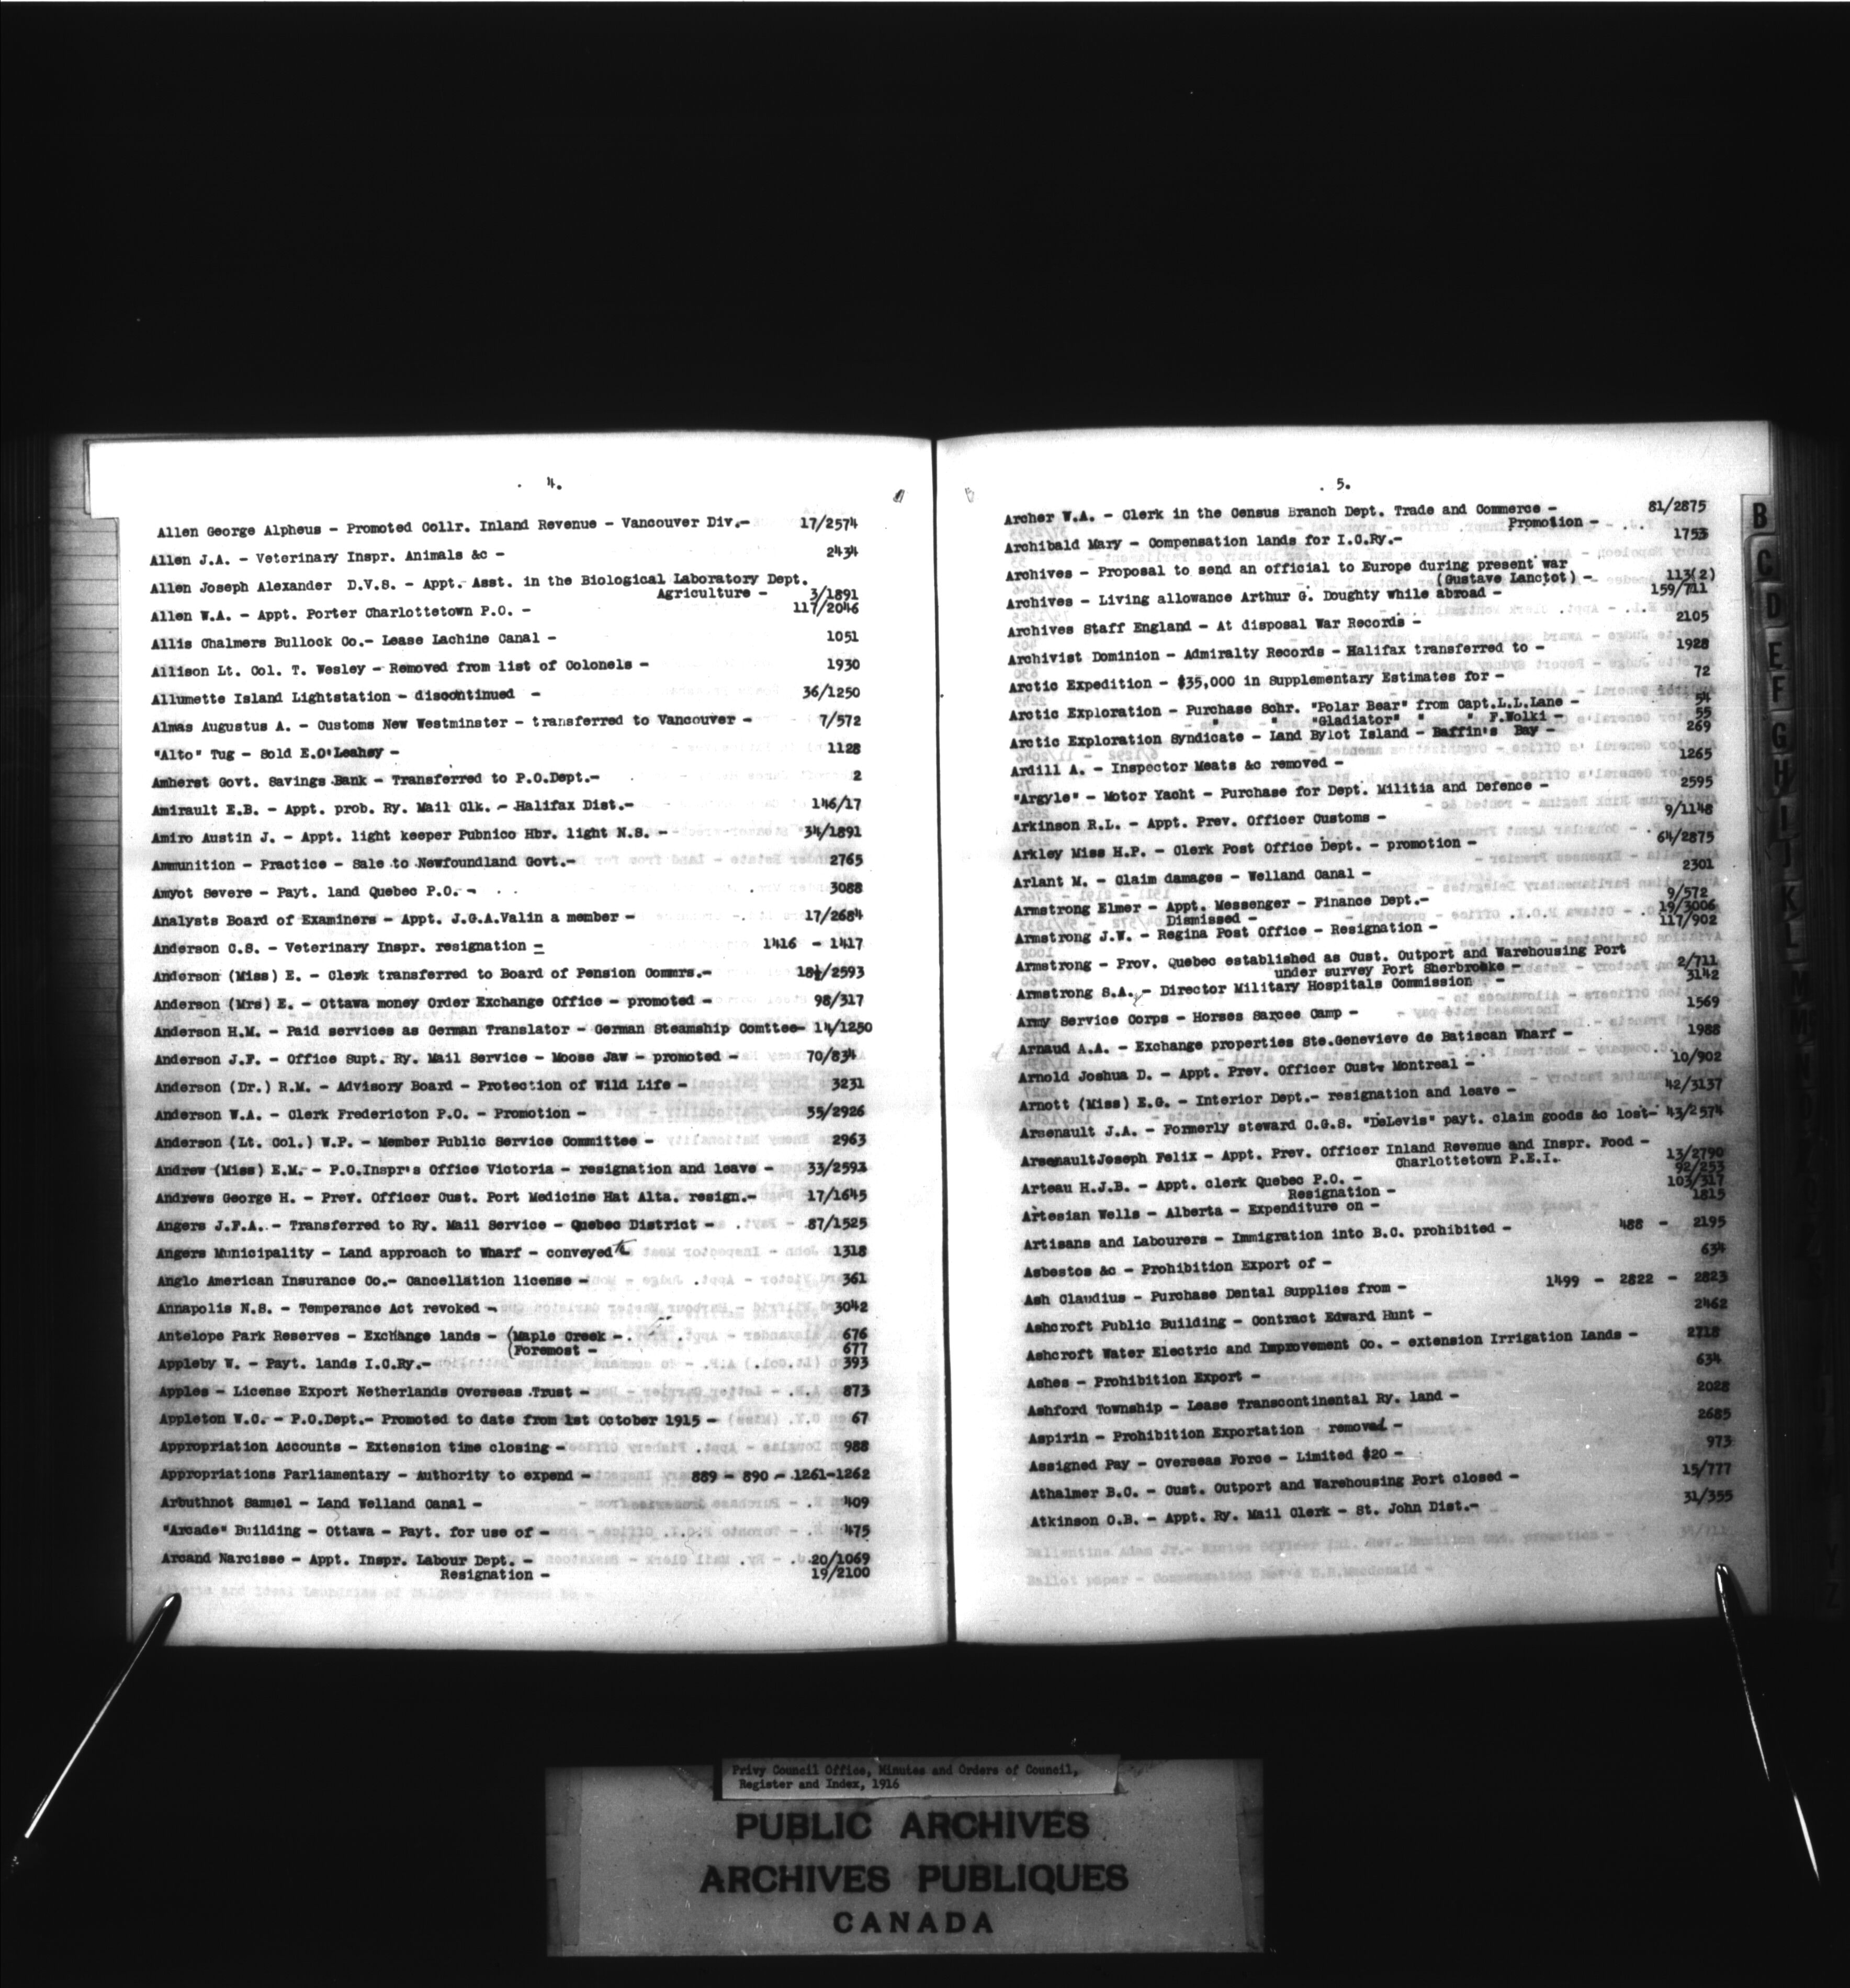 4.
Allen George Alpheus - Promoted Collr. Inland Revenue - Vancouver Div.- 17/2574
Allen J.A. - Veterinary Inspr. Animals &c - 2434
Allen Joseph Alexander D.V.S. - Appt. Asst. in the Biological Laboratory Dept.
Agriculture - 3/1891
Allen W.A. - Appt. Porter Charlottetown P.O. - 117/2046
Allis Chalmers Bullock Co.- Lease Lachine Canal - 1051
Allison Lt. Col. T. Wesley - Removed from list of Colonels - 1930
Allumette Island Lightstation - discontinued - 36/1250
Almas Augustus A. - Customs New Westminster - transferred to Vancouver - 7/572
"Alto" Tug - Sold E.O'Leahey - 1128
Amherst Govt. Savings Bank - Transferred to P.O.Dept.- 2
Amirault E.B. - Appt. prob. Ry. Mail Clk. - Halifax Dist.- 146/17
Amiro Austin J. - Appt. light keeper Pubnico Hbr. light N.S. - 34/1891
Ammunition - Practice - Sale to Newfoundland Govt.- 2765
Amyot Severe - Payt. land Quebec P.O. - 3088
Analysts Board of Examiners - Appt. J.G.A.Valin a member - 17/2684
Anderson C.S. - Veterinary Inspr. resignation - 1416 - 1417
Anderson (Miss) E. - Clerk transferred to Board of Pension Commrs.- 18½/2593
Anderson (Mrs) E. - Ottawa money Order Exchange Office - promoted - 98/317
Anderson H.M. - Paid services as German Translator - German Steamship Comttee- 14/1250
Anderson J.F. - Office Supt. Ry. Mail Service - Moose Jaw - promoted - 70/834
Anderson (Dr.) R.M. - Advisory Board - Protection of Wild Life - 3231
Anderson W.A. - Clerk Fredericton P.O. - Promotion - 35/2926
Anderson (Lt. Col.) W.P. - Member Public Service Committee - 2963
Andrew (Miss) E.M. - P.O.Inspr's Office Victoria - resignation and leave - 33/2593
Andrews George H. - Prev. Officer Cust. Port Medicine Hat Alta. resign.- 17/1645
Angers J.F.A. - Transferred to Ry. Mail Service - Quebec District - 87/1525
Angers Municipality - Land approach to Wharf - conveyed to 1318
Anglo American Insurance Co.- Cancellation license - 361
Annapolis N.S. - Temperance Act revoked - 3042
Antelope Park Reserves - Exchange lands - (Maple Creek - 676
(Foremost - 677
Appleby W. - Payt. lands I.C.Ry.- 393
Apples - License Export Netherlands Overseas Trust - 873
Appleton W.C. - P.O.Dept.- Promoted to date from 1st October 1915 - 67
Appropriation Accounts - Extension time closing - 988
Appropriations Parliamentary - Authority to expend - 889 - 890 - 1261-1262
Arbuthnot Samuel - Land Welland Canal - 409
"Arcade" Building - Ottawa - Payt. for use of - 475
Arcand Narcisse - Appt. Inspr. Labour Dept. - 20/1069
Resignation - 19/2100
5.
Archer W.A. - Clerk in the Census Branch Dept. Trade and Commerce - 81/2875
Promotion -
Archibald Mary - Compensation lands for I.C.Ry.- 1753
Archives - Proposal to send an official to Europe during present war
(Gustave Lanctot) - 113(2)
Archives - Living allowance Arthur G. Doughty while abroad - 159/711
Archives Staff England - At disposal War Records - 2105
Archivist Dominion - Admiralty Records - Halifax transferred to - 1928
Arctic Expedition - $35,000 in Supplementary Estimates for - 72
Arctic Exploration - Purchase Schr. "Polar Bear" from Capt.L.L.Lane - 54
" " "Gladiator" " " F.Wolki - 55
Arctic Exploration Syndicate - Land Bylot Island - Baffin's Bay - 269
Ardill A. - Inspector Meats &c removed - 1265
"Argyle" - Motor Yacht - Purchase for Dept. Militia and Defence - 2595
Arkinson R.L. - Appt. Prev. Officer Customs - 9/1148
Arkley Miss H.P. - Clerk Post Office Dept. - promotion - 64/2875
Arlant M. - Claim damages - Welland Canal - 2301
Armstrong Elmer - Appt. Messenger - Finance Dept.- 9/572
Dismissed - 19/3006
Armstrong J.W. - Regina Post Office - Resignation - 117/902
Armstrong - Prov. Quebec established as Cust. Outport and Warehousing Port
under survey Port Sherbrooke - 2/711
Armstrong S.A. - Director Military Hospitals Commission - 3142
Army Service Corps - Horses Sarcee Camp - 1569
Arnaud A.A. - Exchange properties Ste.Genevieve de Batiscan Wharf - 1988
Arnold Joshua D. - Appt. Prev. Officer Cust. Montreal - 10/902
Arnott (Miss) E.G. - Interior Dept.- resignation and leave - 42/3137
Arsenault J.A. - Formerly steward C.G.S. "DeLevis" payt. claim goods &c lost- 43/2574
Arsenault Joseph Felix - Appt. Prev. Officer Inland Revenue and Inspr. Food -
Charlottetown P.E.I. 13/2790
Arteau H.J.B. - Appt. clerk Quebec P.O. - 92/253
Resignation - 103/317
Artesian Wells - Alberta - Expenditure on - 1815
Artisans and Labourers - Immigration into B.C. prohibited - 488 - 2195
Asbestos &c - Prohibition Export of - 634
Ash Claudius - Purchase Dental Supplies from - 1499 - 2822 - 2823
Ashcroft Public Building - Contract Edward Hunt - 2462
Ashcroft Water Electric and Improvement Co. - extension Irrigation Lands - 2718
Ashes - Prohibition Export - 634
Ashford Township - Lease Transcontinental Ry. land - 2028
Aspirin - Prohibition Exportation removed - 2685
Assigned Pay - Overseas Force - Limited $20 - 973
Athalmer B.C. - Cust. Outport and Warehousing Port closed - 15/777
Atkinson O.B. - Appt. Ry. Mail Clerk - St. John Dist.- 31/355
B
C
D
E
F
G
H
I
J
K
L
M
Privy Council Office, Minutes and Orders of Council,
Register and Index, 1916
PUBLIC ARCHIVES
ARCHIVES PUBLIQUES
CANADA